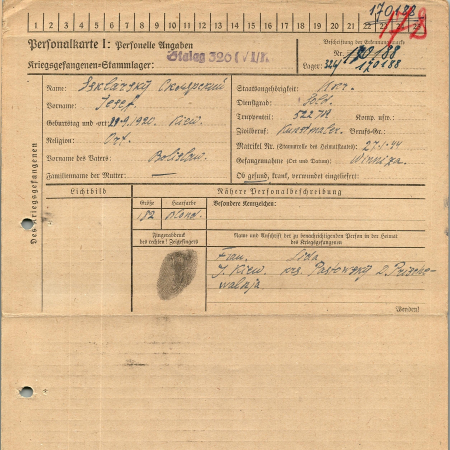 1 2 3 4 5 6 7 8 9 10 11 12 13 14 15 16 17 18 19 20 21 22 23 24 25
170188
Personalkarte I: Personelle Angaben
Stalag 326 (VI/K)
Beschriftung der Erkennungsmarke
Nr. 170188
Kriegsgefangenen-Stammlager:
Lager: 326 170188
Des Kriegsgefangenen
Name: Szklarsky
Staatsangehörigkeit:
Vorname: Josef
Dienstgrad: Sold.
Geburtstag und -ort: 19.9.1920. Kiew.
Truppenteil: Komp. usw.:
Religion: Ort.
Zivilberuf: Kunstmaler. Berufs-Gr.:
Matrikel Nr. (Stammrolle des Heimatstaates): 27.1.44
Vorname des Vaters: Boleslaw.
Gefangennahme (Ort und Datum): Winniza.
Familienname der Mutter: —
Ob gesund, krank, verwundet eingeliefert:
Lichtbild
Nähere Personalbeschreibung
Größe Haarfarbe Besondere Kennzeichen:
182 blond.
Fingerabdruck
des rechten! Zeigefingers
Name und Anschrift der zu benachrichtigenden Person in der Heimat
des Kriegsgefangenen
Frau. Lida
Kiew.
Wenden!